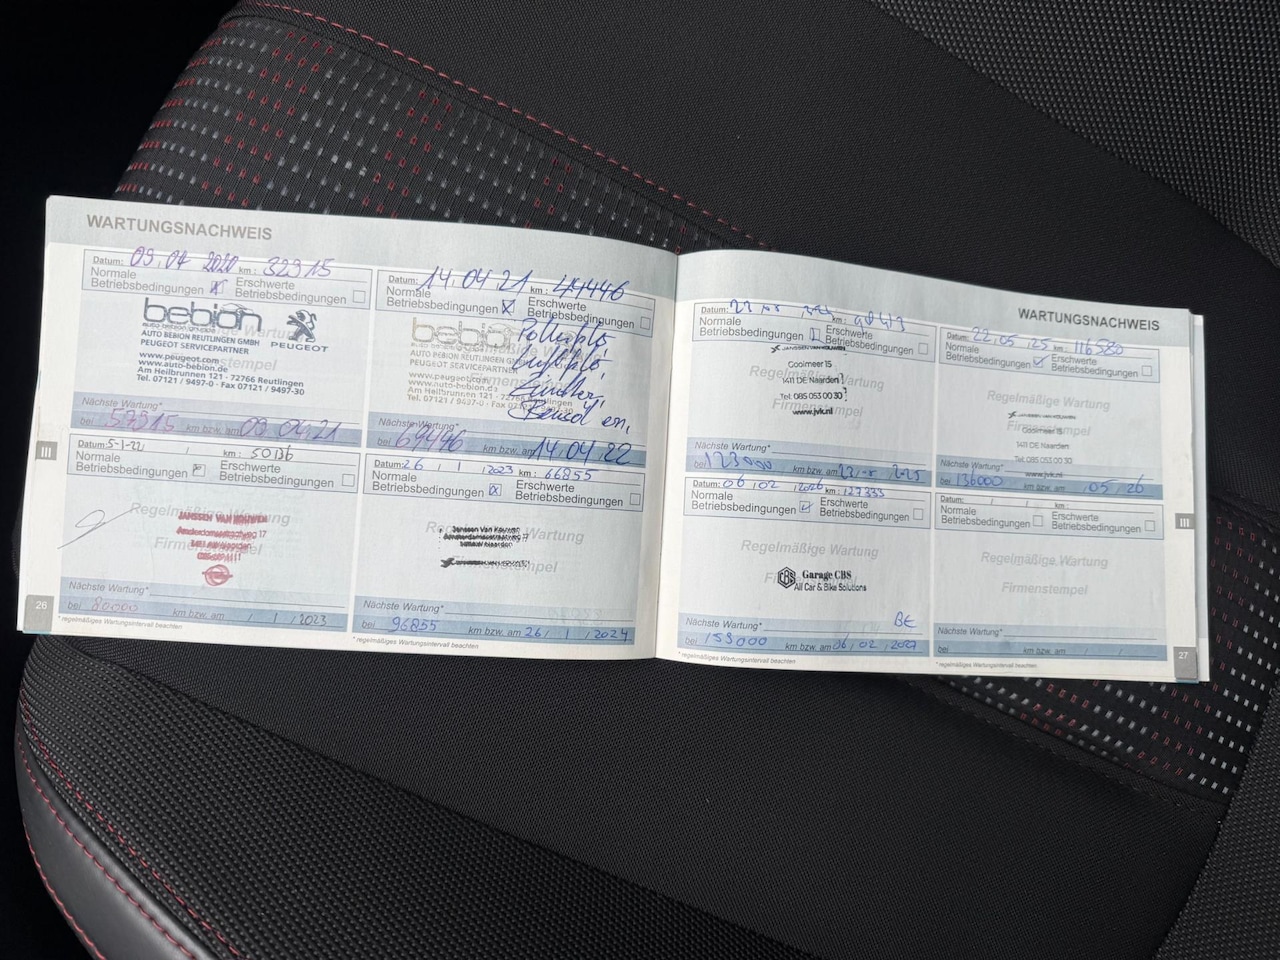 WARTUNGSNACHWEIS
Datum: 09.04 2020 km: 32315
Normale Betriebsbedingungen
Erschwerte Betriebsbedingungen
bebion
auto bebion gruppe
AUTO BEBION REUTLINGEN GMBH
PEUGEOT SERVICEPARTNER
PEUGEOT
www.peugeot.com
www.auto-bebion.de
Am Heilbrunnen 121 - 72766 Reutlingen
Tel. 07121 / 9497-0 - Fax 07121 / 9497-30
Nächste Wartung*
bei 57315 km bzw. am 09.04.21
Datum: 14.04.21 km: 44446
Normale Betriebsbedingungen
Erschwerte Betriebsbedingungen
bebion
AUTO BEBION REUTLINGEN GMBH
PEUGEOT SERVICEPARTNER
www.peugeot.com
www.auto-bebion.de
Am Heilbrunnen 121 - 72766 Reutlingen
Tel. 07121 / 9497-0 - Fax 07121 / 9497-30
Nächste Wartung*
bei 69446 km bzw. am 14.04.22
Datum: 5-1-22 km: 50136
Normale Betriebsbedingungen
Erschwerte Betriebsbedingungen
Regelmäßige Wartung
JANSSEN VAN KOUWEN
Nächste Wartung*
bei 80000 km bzw. am / 1 / 2023
Datum: 26 / 1 / 2023 km: 66855
Normale Betriebsbedingungen
Erschwerte Betriebsbedingungen
Janssen Van Kouwen
Naarden
Firmenstempel
Nächste Wartung*
bei 96855 km bzw. am 26 / 1 / 2024
* regelmäßiges Wartungsintervall beachten
* regelmäßiges Wartungsintervall beachten
26
III
WARTUNGSNACHWEIS
Datum: km:
Normale Betriebsbedingungen
Erschwerte Betriebsbedingungen
JANSSEN VAN KOUWEN
Gooimeer 15
1411 DE Naarden
Tel. 085 053 00 30
www.jvk.nl
Regelmäßige Wartung
Firmenstempel
Nächste Wartung*
bei 123000 km bzw. am
Datum: 22.05.25 km: 116580
Normale Betriebsbedingungen
Erschwerte Betriebsbedingungen
Regelmäßige Wartung
Firmenstempel
JANSSEN VAN KOUWEN
Gooimeer 15
1411 DE Naarden
Tel. 085 053 00 30
www.jvk.nl
Nächste Wartung*
bei 136000 km bzw. am .05 / 26
Datum: 06 / 02 / 2026 km: 127333
Normale Betriebsbedingungen
Erschwerte Betriebsbedingungen
Regelmäßige Wartung
CBS Garage CBS
All Car & Bike Solutions
Nächste Wartung*
bei 153000 km bzw. am 06 / 02 / 2027
* regelmäßiges Wartungsintervall beachten
Datum: km:
Normale Betriebsbedingungen
Erschwerte Betriebsbedingungen
Regelmäßige Wartung
Firmenstempel
Nächste Wartung*
bei km bzw. am
* regelmäßiges Wartungsintervall beachten
27
III